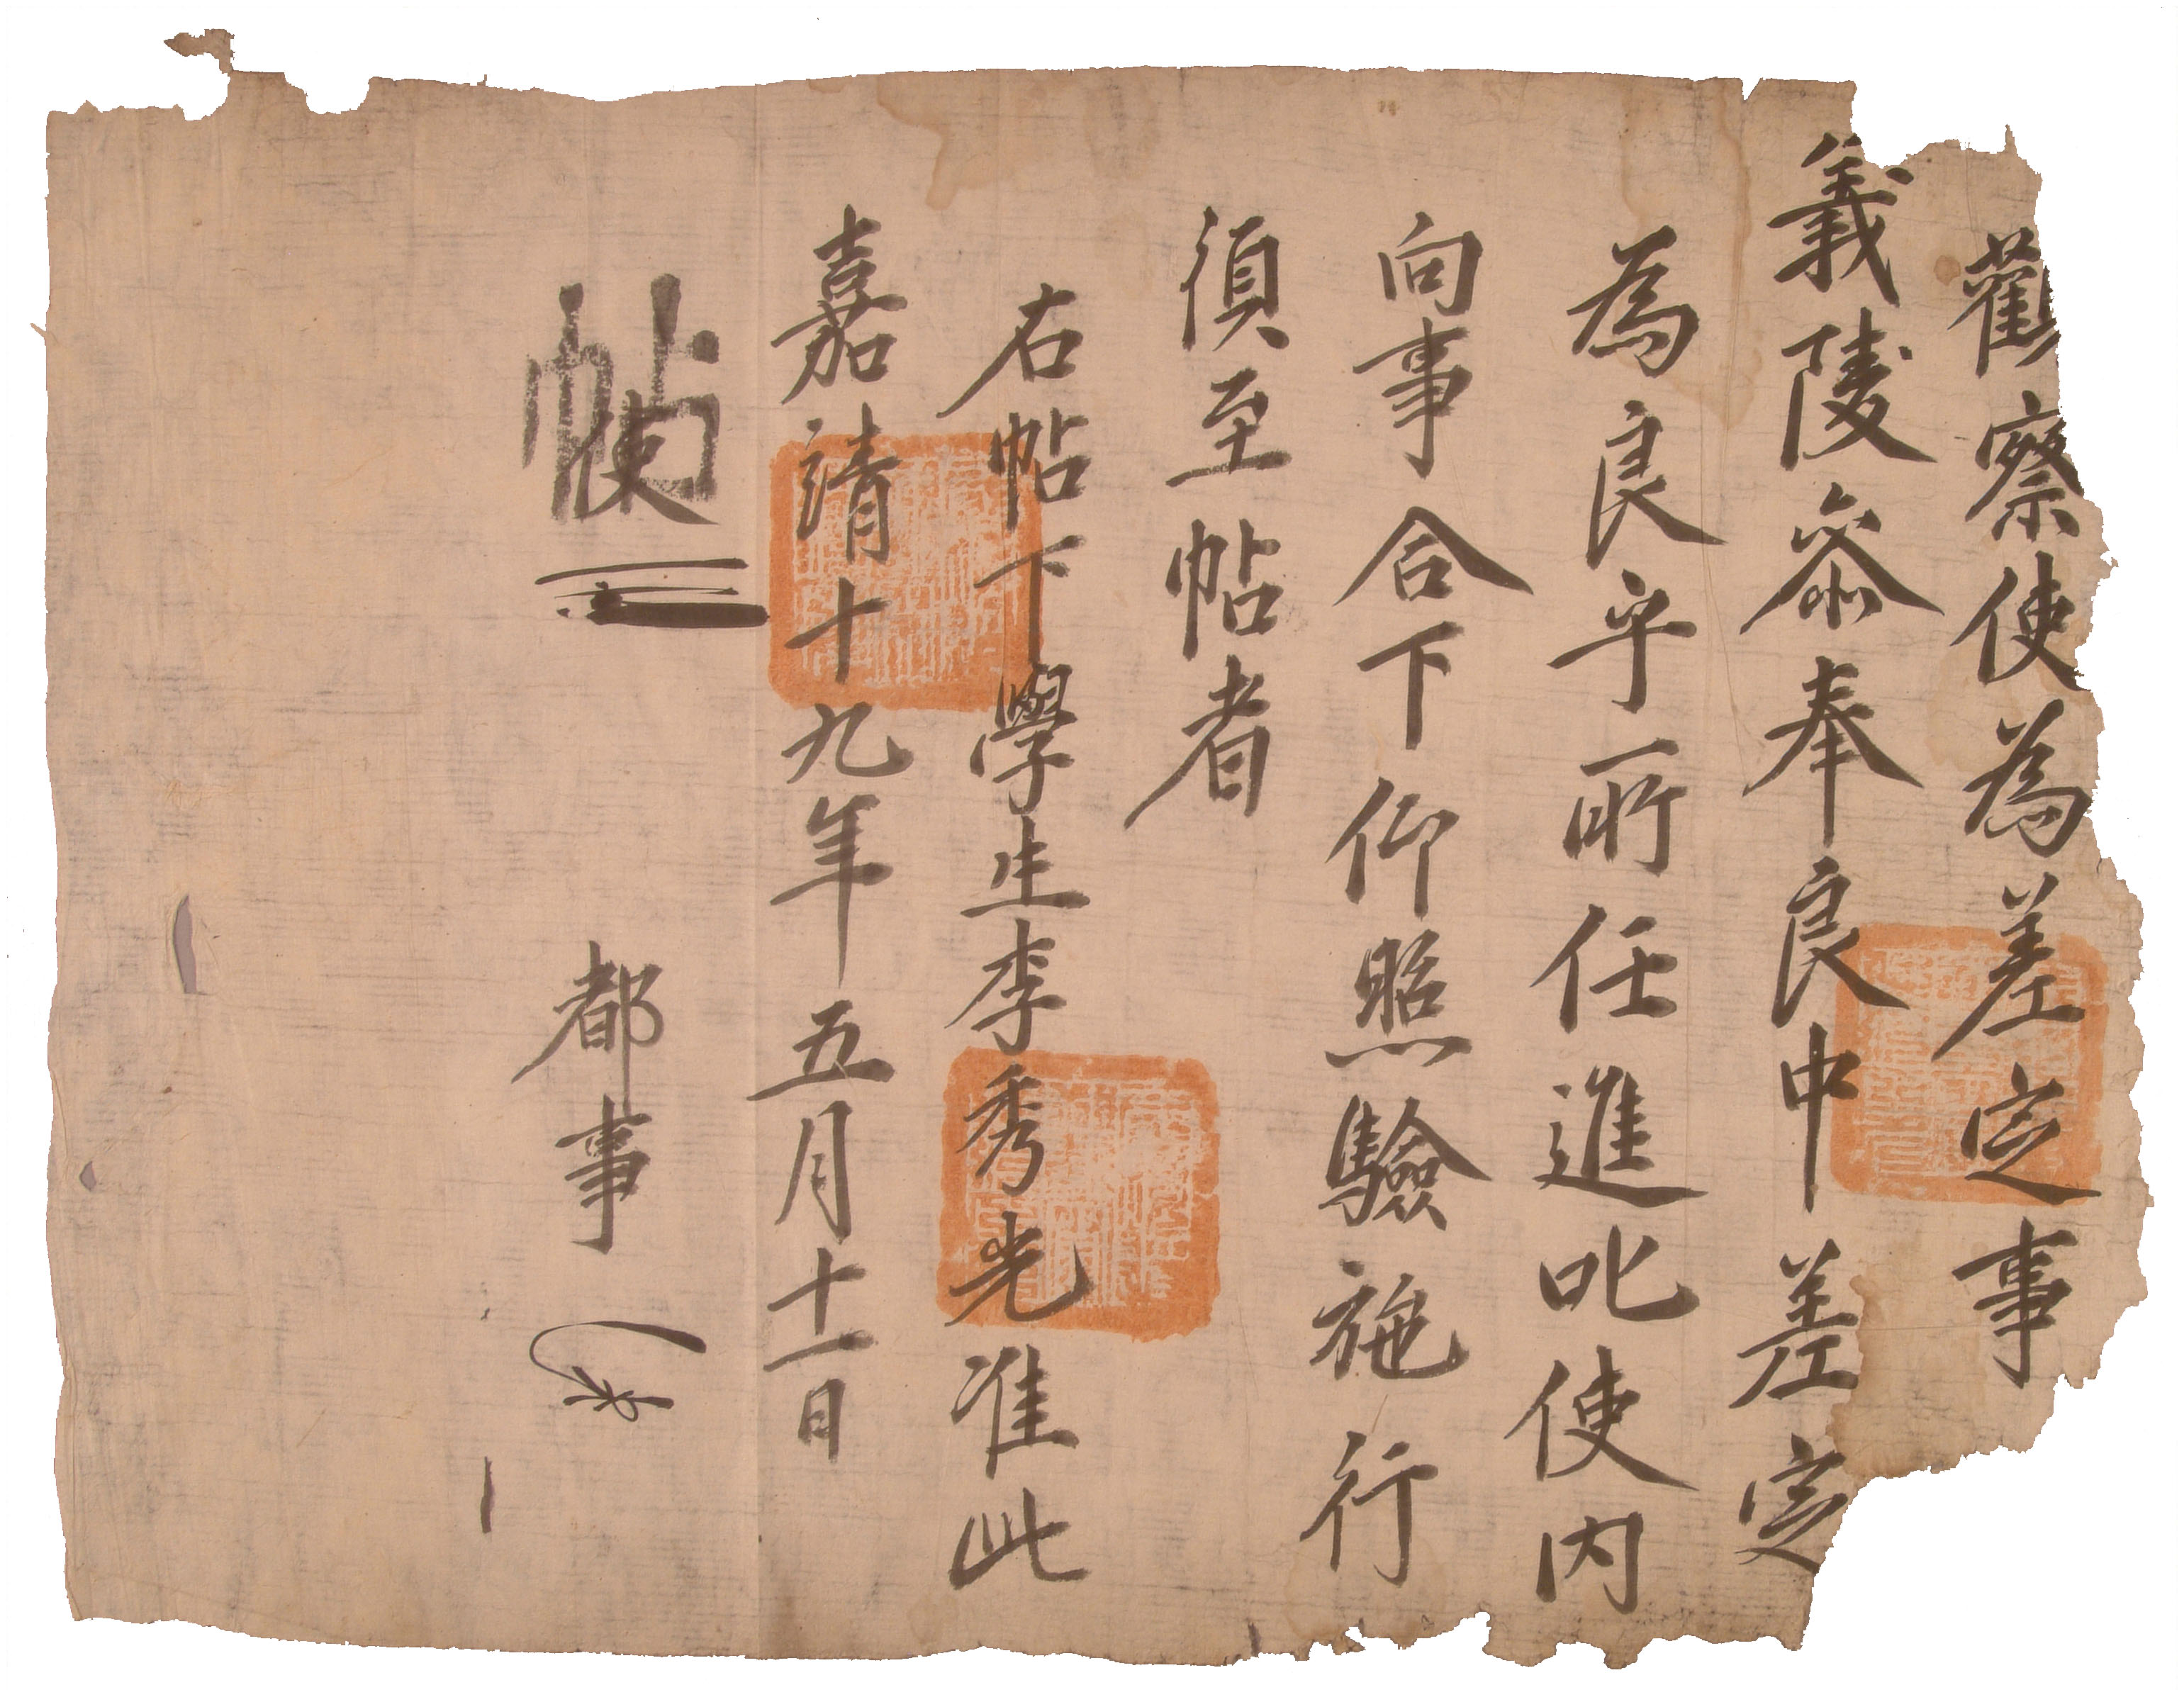 觀察使爲差定事
義陵叅奉良中差定
爲良乎所任進叱使內
向事合下仰照驗施行
須至帖者
右帖下學生李秀光准此
嘉靖十九年五月十一日
帖
使
都事